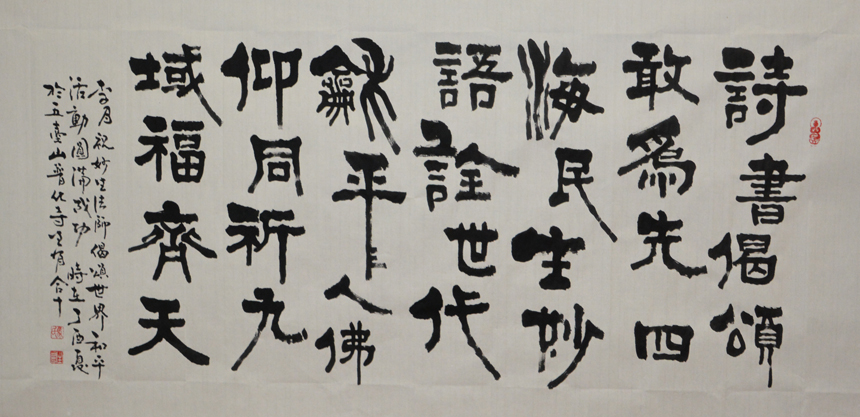 詩書偈頌
敢爲先四
海民生妙
語詮世代
龢平人佛
仰同祈九
域福齊天
月祝妙生法師偈頌世界和平
活動圓滿成功 時在丁酉夏
於五臺山普化寺 合十